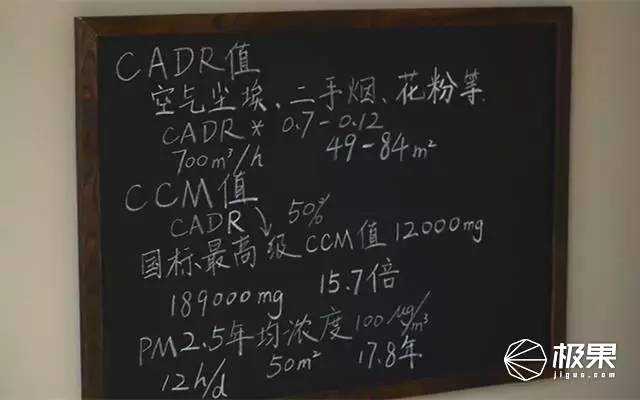 CADR值
空气尘埃、二手烟、花粉等
CADR * 0.7-0.12
700m³/h 49-84m²
CCM值
CADR↘ 50%
国标最高级CCM值12000mg
189000mg 15.7倍
PM2.5年均浓度100μg/m³
12h/d 50m² 17.8年
极果
jiguo.com